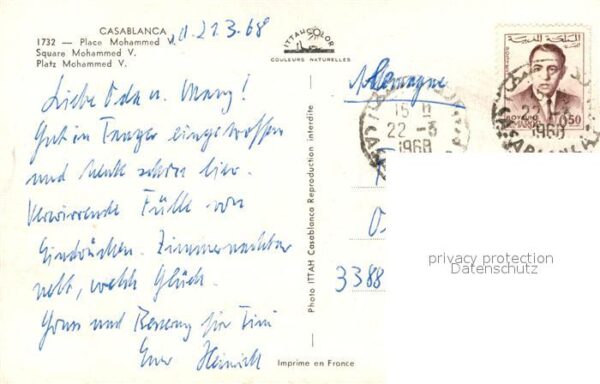 CASABLANCA
1732 — Place Mohammed V.
Square Mohammed V.
Platz Mohammed V.
21.3.68
Liebe Oda u. Many!
Gut in Tanger eingetroffen
und heute schon hier.
Verwirrende Fülle von
Eindrücken. Zimmernachbar
nett, welch Glück.
Gruss und für
Euer Heinrich
ITTAHCOLOR
COULEURS NATURELLES
Photo ITTAH Casablanca Reproduction interdite
Imprime en France
Allemagne
3388
المملكة المغربية
ROYAUME
0,50
15 H
22 - 3
1968
22
1968
CASABLANCA
privacy protection
Datenschutz